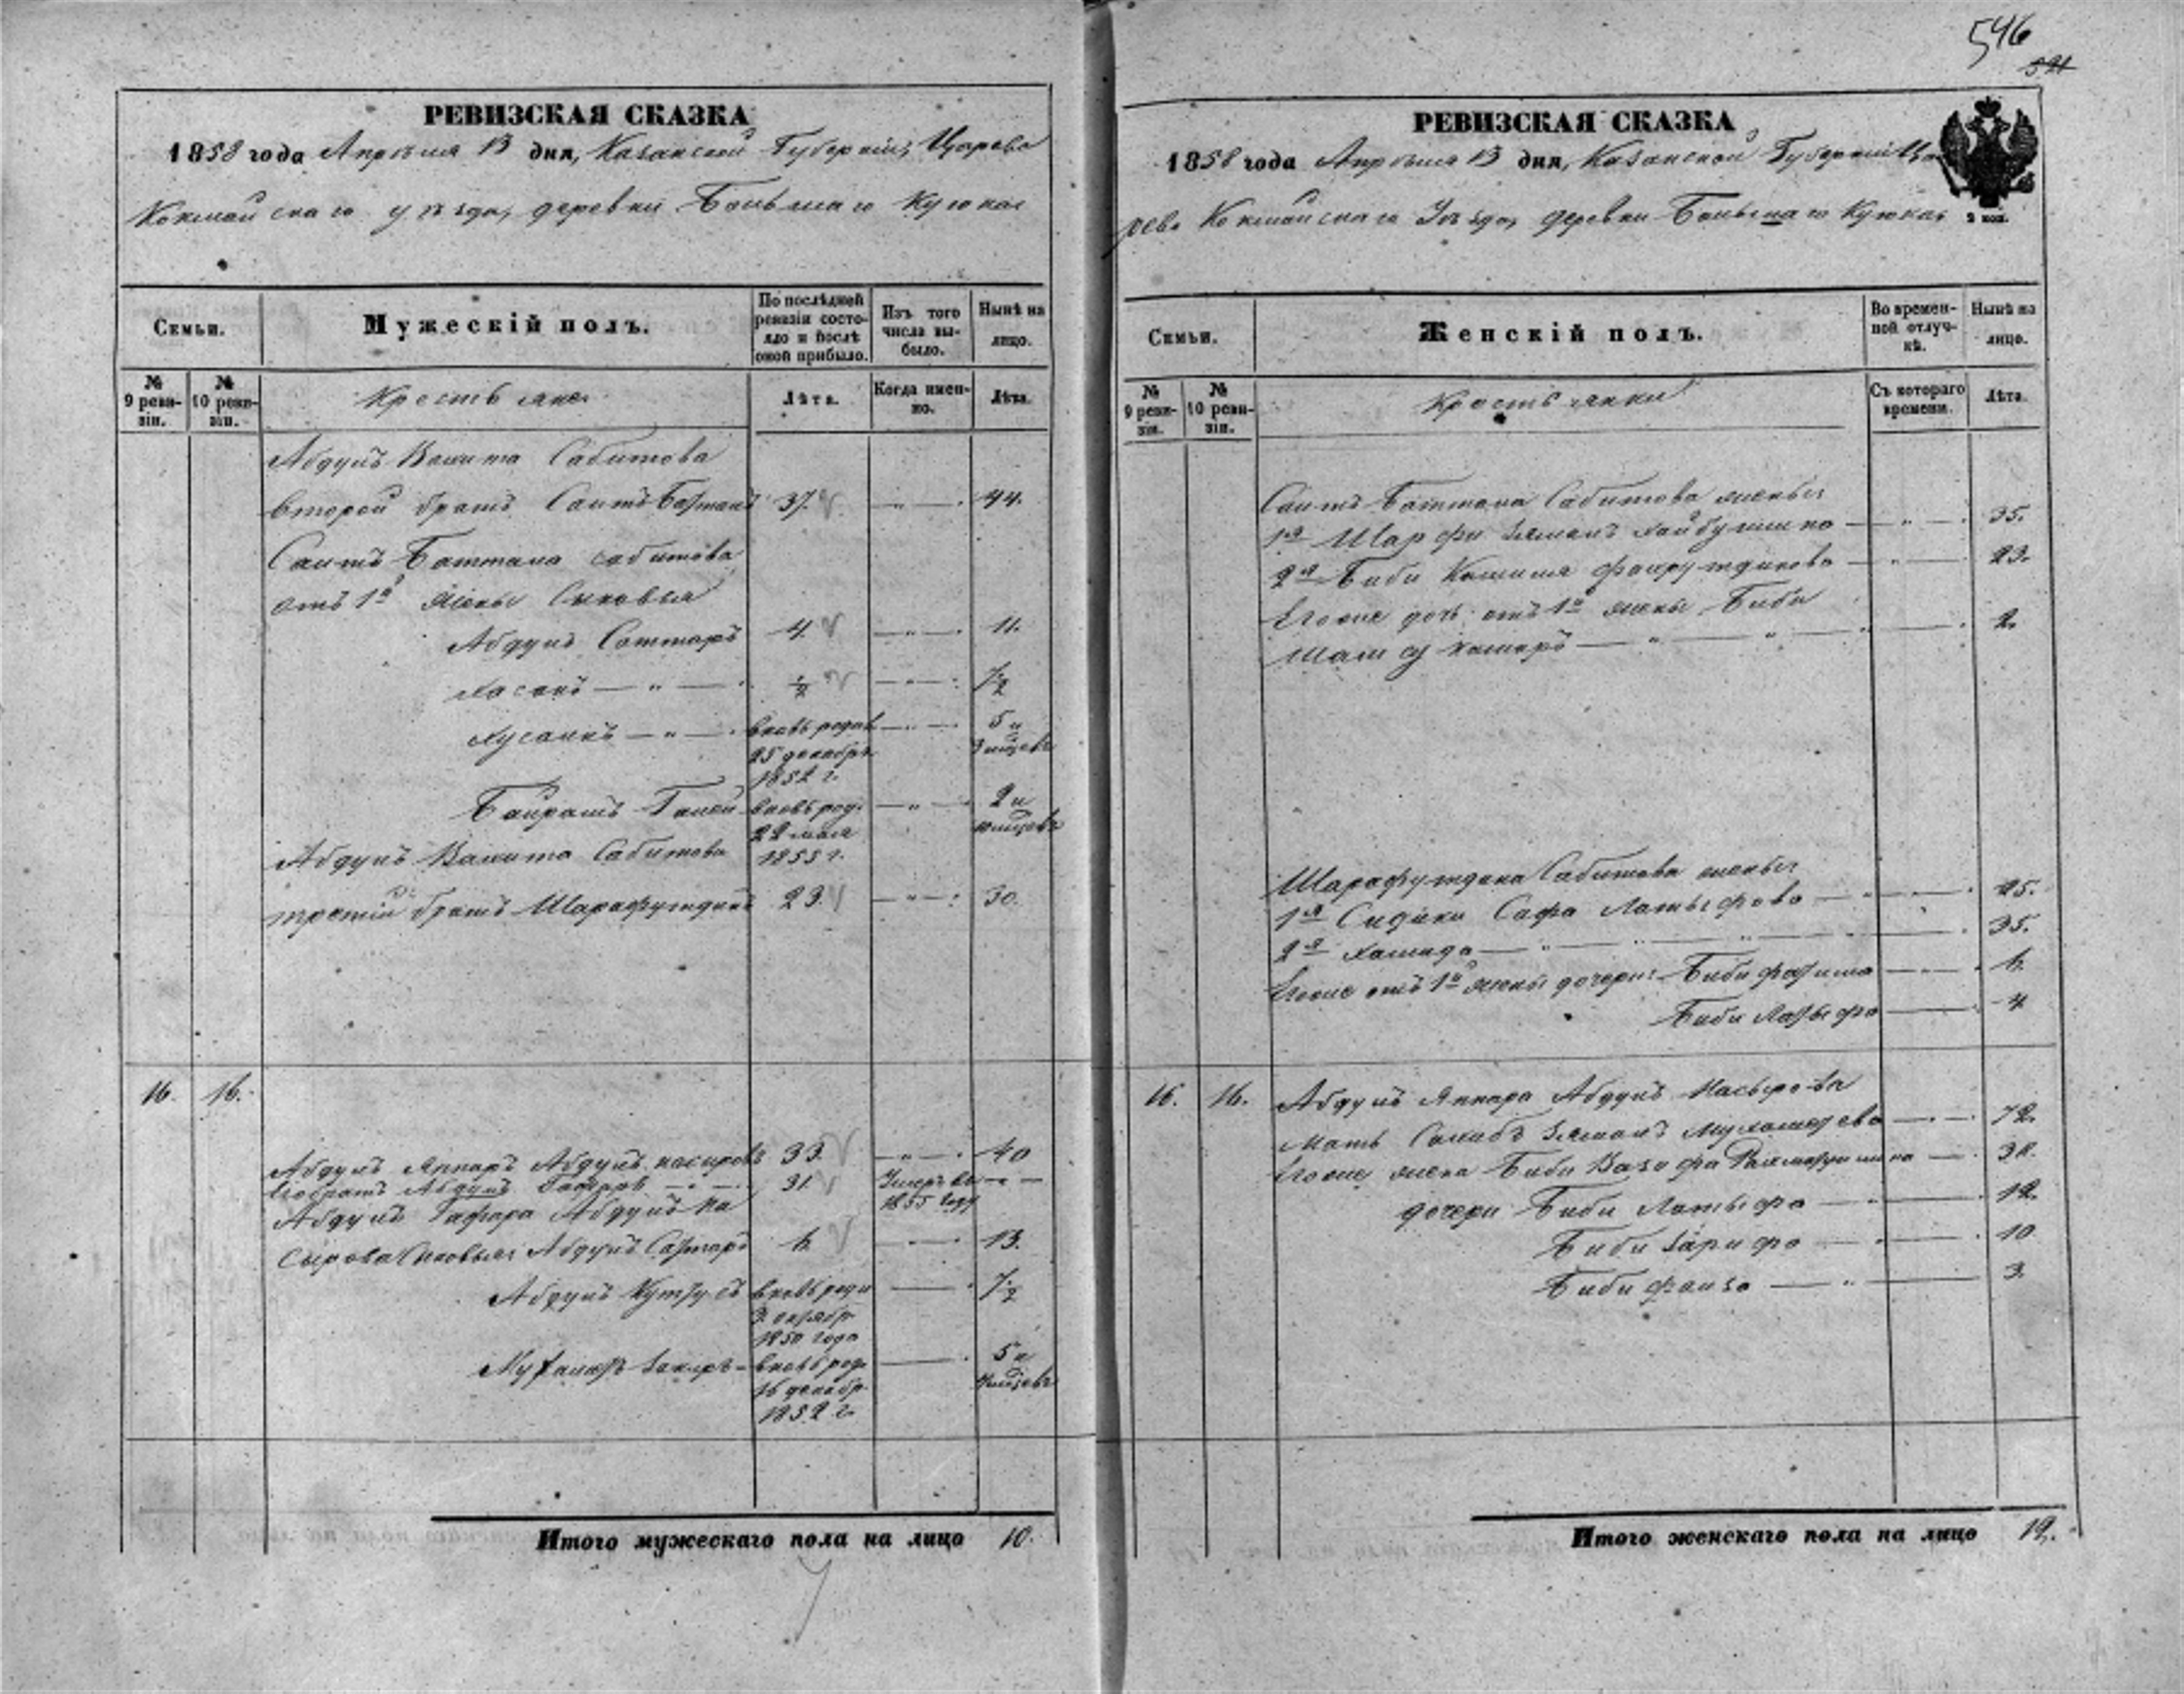 546
521
РЕВИЗСКАЯ СКАЗКА
1858 года Апрѣля 13 дня, Казанской Губерніи, Царево
Кокшайскаго уѣзда, деревни Большаго Куюка
Семьи.
Мужескій полъ.
По послѣдней ревизіи состояло и послѣ оной прибыло.
Изъ того числа выбыло.
Нынѣ на лицо.
№ 9 ревизіи.
№ 10 ревизіи.
Крестьяне
Лѣта.
Когда именно.
Лѣта.
Абдулъ Вагита Сабитова
второй братъ Саитъ Баттанъ 37. — " — 44.
Саитъ Баттана Сабитова
отъ 1й жены Сыновья
Абдулъ Саттаръ 4. — " — 11.
Хасанъ — " — ½ — " — 7½
Хусаинъ — " — вновь родив — " — 5 и
25 декабря 3 мѣсяцевъ
1852 г.
Байрашъ вновь род. — " — 2 и
22 мая 10 мѣсяцевъ
Абдулъ Вагита Сабитова 1855 г.
третій братъ Шарафутдинъ 23. — " — 30.
16. 16.
Абдулъ Яппаръ Абдулъ насыровъ 33. — " — 40
Его братъ Абдулъ Гафаръ — " — 31. Умеръ въ — " —
Абдулъ Гафара Абдулъ На 1855 году
сырова Сыновья: Абдулъ Саттаръ 6. — " — 13.
Абдулъ вновь роди — 7½
3 октябр
1850 года
Закиръ — вновь род. — 5 и
16 декабр. 4 мѣсяцевъ
1852 г.
Итого мужескаго пола на лицо 10.
РЕВИЗСКАЯ СКАЗКА
2 коп.
1858 года Апрѣля 13 дня, Казанской Губерніи Ца
рево Кокшайскаго Уѣзда, деревни Большаго Куюка,
Семьи.
Женскій полъ.
Во временной отлучкѣ.
Нынѣ на лицо.
№ 9 ревизіи.
№ 10 ревизіи.
Крестьянки
Съ котораго времени.
Лѣта.
Саитъ Баттана Сабитова жены
1я Шарфи Зямалъ Хайбуллина — " — 35.
2я Биби Камиля Фахрутдинова — " — 23.
Его же дочь отъ 1й жены Биби
Шамсу камаръ — " — " — 2.
Шарафутдина Сабитова жены
1я Сидики Сафа Латыфова — " — 25.
2я Хамида — " — " — " — 35.
Его же отъ 1й жены дочери: Биби Фатима — " — 6
Биби Латыфа — 4
16. 16. Абдулъ Яппара Абдулъ Насырова
мать Сахибъ Зямалъ — " — 72.
Его же жена Биби Вазифа — 38.
дочери Биби Латыфа — 12.
Биби Зарифа — " — 10
Биби Фаиза — " — 3.
Итого женскаго пола на лицо 12.